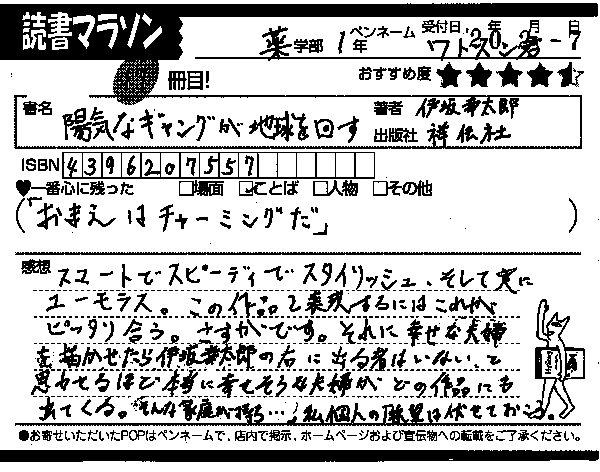 読書マラソン
薬学部 1年 ペンネーム ワトスン君 受付日 年 月 日
冊目! おすすめ度 ★★★★★
書名 陽気なギャングが地球を回す
著者 伊坂幸太郎
出版社 祥伝社
ISBN 4396207557
♥一番心に残った □場面 ☑ことば □人物 □その他
(「おまえはチャーミングだ」)
感想 スマートでスピーディーでスタイリッシュ、そして実に
ユーモラス。この作品を表現するにはこれが
ピッタリ合う。さすがです。それに幸せな夫婦
を描かせたら伊坂幸太郎の右に出る者はいない、と
思わせるほど本当に幸せそうな夫婦がどの作品にも
出てくる。「そんな家庭が持ち…」私個人の願望は伏せておこう。
●お寄せいただいたPOPはペンネームで、店内で掲示、ホームページおよび宣伝物への転載をご了承ください。